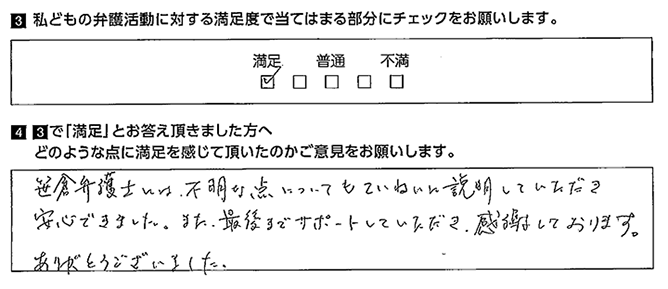 3 私どもの弁護活動に対する満足度で当てはまる部分にチェックをお願いします。
満足 普通 不満
☑ □ □ □ □
4 3で「満足」とお答え頂きました方へ
どのような点に満足を感じて頂いたのかご意見をお願いします。
笹倉弁護士には、不明な点についてもていねいに説明していただき
安心できました。また、最後までサポートしていただき、感謝しております。
ありがとうございました。